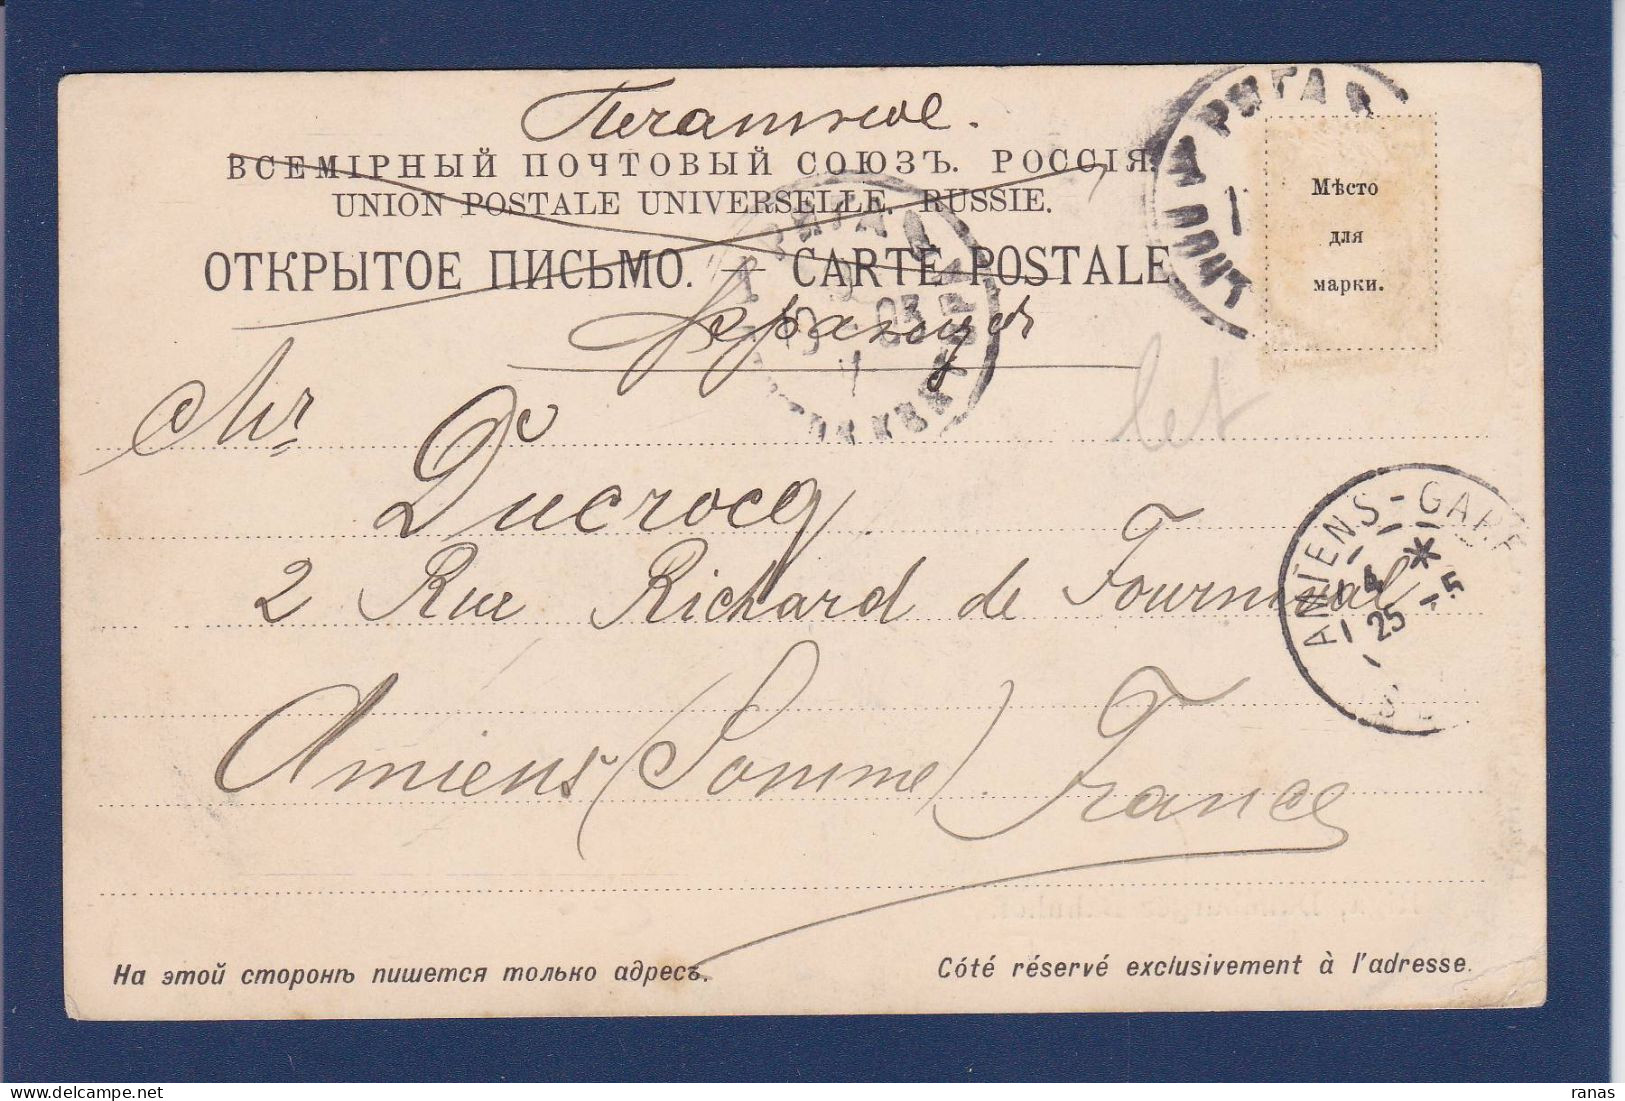 Печатное.
ВСЕМІРНЫЙ ПОЧТОВЫЙ СОЮЗЪ. РОССІЯ.
UNION POSTALE UNIVERSELLE. RUSSIE.
ОТКРЫТОЕ ПИСЬМО. — CARTE POSTALE
Мѣсто
для
марки.
РИГА
ПОЧТ
РИГА
03
Франція
let
Mr Ducrocq
2 Rue Richard de Fournival
Amiens (Somme) France
AMIENS-GARE
4
25 -5
На этой сторонѣ пишется только адресъ.
Côté réservé exclusivement à l'adresse.
ranas